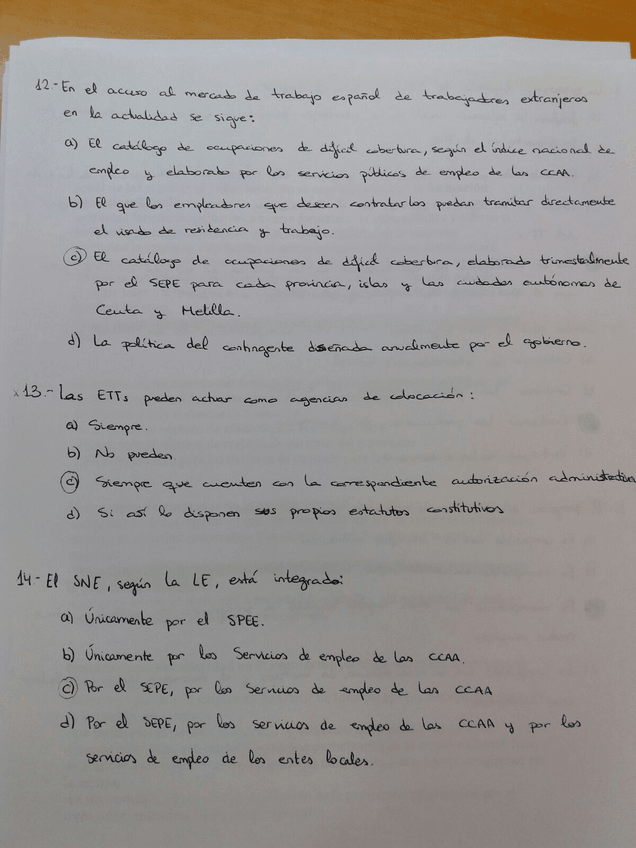 12.- En el acceso al mercado de trabajo español de trabajadores extranjeros
en la actualidad se sigue:
a) El catálogo de ocupaciones de difícil cobertura, según el índice nacional de
empleo y elaborado por los servicios públicos de empleo de las CCAA.
b) El que los empleadores que deseen contratarlos puedan tramitar directamente
el visado de residencia y trabajo.
c) El catálogo de ocupaciones de difícil cobertura, elaborado trimestralmente
por el SEPE para cada provincia, islas y las ciudades autónomas de
Ceuta y Melilla.
d) La política del contingente diseñada anualmente por el gobierno.
x 13.- Las ETTs pueden actuar como agencias de colocación:
a) Siempre.
b) No pueden
c) Siempre que cuenten con la correspondiente autorización administrativa
d) Si así lo disponen sus propios estatutos constitutivos
14- El SNE, según la LE, está integrado:
a) Únicamente por el SPEE.
b) Únicamente por los Servicios de empleo de las CCAA.
c) Por el SEPE, por los Servicios de empleo de las CCAA
d) Por el SEPE, por los servicios de empleo de las CCAA y por los
servicios de empleo de los entes locales.